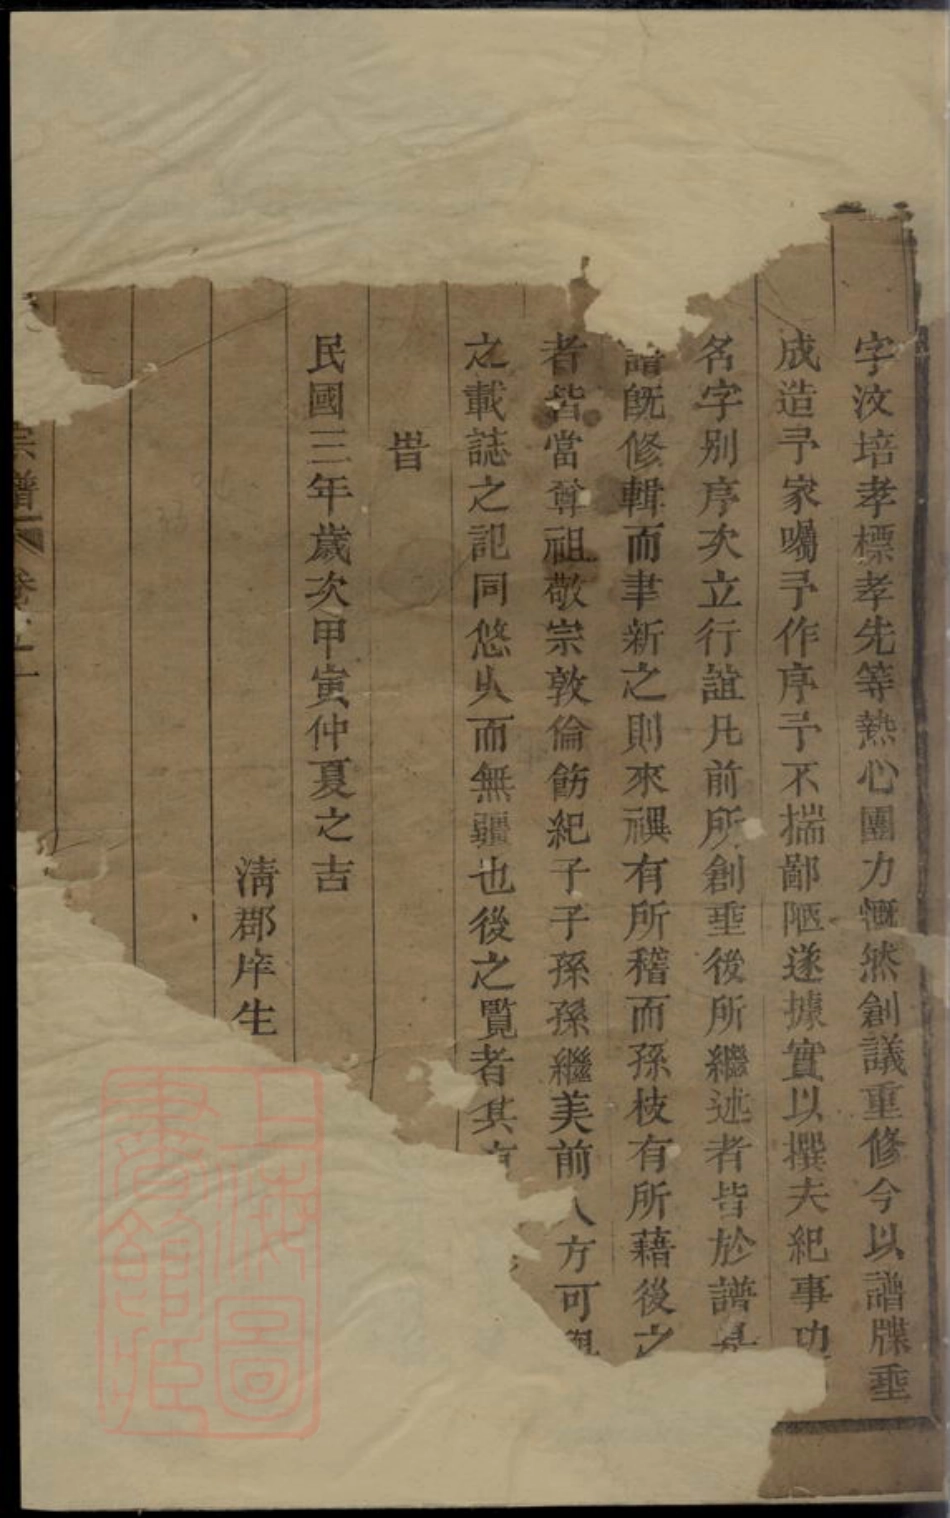 字汶培孝標孝先等熱心團力慨然創議重修今以譜牒垂
成造予家囑予作序予不揣鄙陋遂據實以撰夫紀事功
名字别序次立行誼凡前所創垂後所繼述者皆於譜是
譜既修輯而聿新之則來禩有所稽而孫枝有所藉後之
者皆當尊祖敬宗敦倫飭紀子子孫孫繼美前人方可與
之載誌之記同悠久而無疆也後之覽者其
旹
民國三年歲次甲寅仲夏之吉
淸郡庠生
宗譜 卷之一
上海圖書館藏